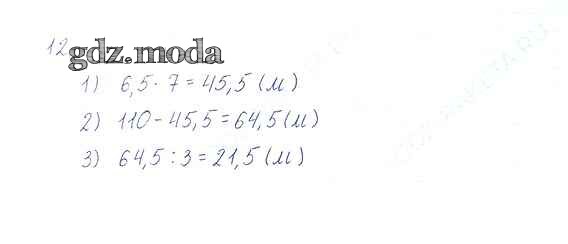 12
gdz.moda
1) 6,5 · 7 = 45,5 (м)
2) 110 - 45,5 = 64,5 (м)
3) 64,5 : 3 = 21,5 (м)